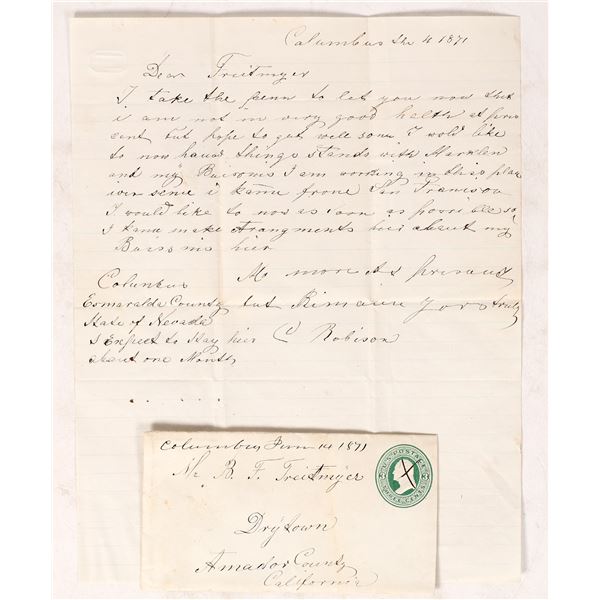 Columbus the 4 1871
Dear Treitmyer
I take the penn to let you now that
i am not in very good health at pres
cent but hope to get well some i wold like
to now haus things stands with
and my Buissoms I am working in this plac
iver sence i kame frome San Francisco
I would like to now as soon as possible so
I kane make arangments hier about my
Buissoms hier
No more As presand
but Rimain yors truly
C Robison
Columbus
Esmaralda County
State of Nevada
I Expect to Stay hier
about one Month
Columbus 14 1871
Mr B. F. Treitmyer
Drytown
Amador County
California
U.S. POSTAGE
THREE CENTS